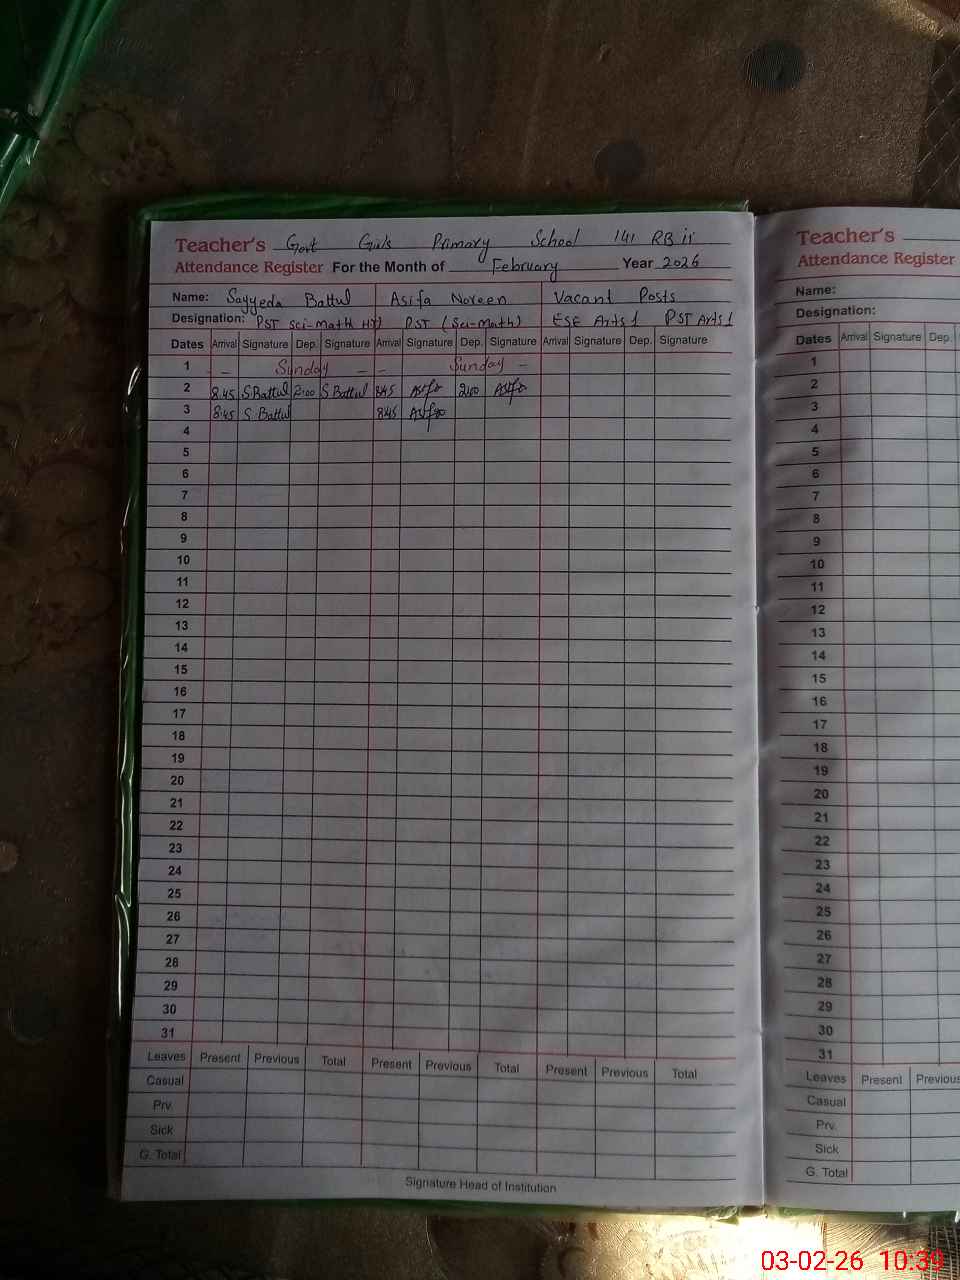 Teacher's Govt Girls Primary School 141 RB ii
Attendance Register For the Month of February Year 2026
Name: Sayyeda Battul Asifa Noreen Vacant Posts
Designation: PST Sci-Math HT) PST (Sci-Math) ESE Arts 1 PST Arts 1
Dates Arrival Signature Dep. Signature Arrival Signature Dep. Signature Arrival Signature Dep. Signature
1 – Sunday – – Sunday –
2 8:45 S.Battul 2:00 S.Battul 8:45 Asifa 2:00 Asifa
3 8:45 S.Battul 8:45 Asifa
4
5
6
7
8
9
10
11
12
13
14
15
16
17
18
19
20
21
22
23
24
25
26
27
28
29
30
31
Leaves Present Previous Total Present Previous Total Present Previous Total
Casual
Prv.
Sick
G. Total
Signature Head of Institution
Teacher's
Attendance Register
Name:
Designation:
Dates Arrival Signature Dep.
1
2
3
4
5
6
7
8
9
10
11
12
13
14
15
16
17
18
19
20
21
22
23
24
25
26
27
28
29
30
31
Leaves Present Previous
Casual
Prv.
Sick
G. Total
03-02-26 10:39